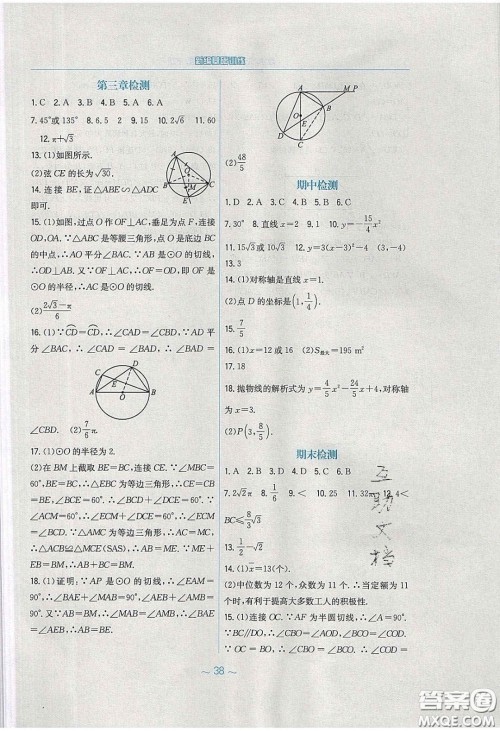 新编基础训练
第三章检测
1. C  2. A  3. B  4. B  5. A  6. A
7. 45°或 135°  8. 6.5  2  9. 115  10. 2√6  11. 60
12. π+√3
13. (1)如图所示.
(2)弦 CE 的长为√30.
14. 连接 BE, 证△ABE∽△ADC
即可.
15. (1)如图, 过点 O 作 OF⊥AC, 垂足为点 F, 连接
OD, OA. ∵△ABC 是等腰三角形, 点 O 是底边 BC
的中点, ∴AO 平分∠BAC. ∵AB 是⊙O 的切线,
∴OD⊥AB. 又∵OF⊥AC, ∴OF=OD, 即 OF 是
⊙O 的半径. ∴AC 是⊙O 的切线.
16. (1)∵CD=CD, ∴∠CAD=∠CBD. ∵AD 平
分∠BAC, ∴∠CAD=∠BAD, ∴∠BAD=
A B C D E O
∠CBD. (2)7/6 π.
17. (1)⊙O 的半径为 2.
(2)在 BM 上截取 BE=BC, 连接 CE. ∵∠MBC=
60°, BE=BC, ∴△EBC 为等边三角形, ∴CE=CB=
BE, ∠EBC=∠BCE=60°, ∴∠BCD+∠DCE=60°.
∵∠ACM=60°, ∴∠ECM+∠DCE=60°, ∴∠ECM
=∠BCD. ∵△ABC 为等边三角形, ∴AC=BC,
∴△ACB≌△MCE(SAS), ∴AB=ME. ∵ME+EB
=BM, ∴AB+BC=BM.
18. (1)证明: ∵AP 是⊙O 的切线, ∴∠EAM=
90°, ∴∠BAE+∠MAB=90°, ∠AEB+∠AMB=
90°. ∵AB=BM, ∴∠MAB=∠AMB, ∴∠BAE=
∠AEB, ∴AB=BE.
A M P O B D E C
(2)48/5
期中检测
1. D  2. A  3. D  4. C  5. C  6. B
7. 30°  8. 直线 x=2  9. 1  10. y=-15/4 x²
11. 15√3或 10√3  12. y=(x-3)²-4  (3,-4)
13. 3
14. (1)对称轴是直线 x=1.
(2)点 D 的坐标是(1, 1/4).
15. 7/5
16. (1)x=12 或 16  (2)S最大=195 m²
17. 18
18. 抛物线的解析式为 y=4/5x²-24/5x+4, 对称轴
为 x=3.
(2)P(3, 8/5).
期末检测
1. A  2. C  3. B  4. D  5. C  6. B
7. 2√2π  8. 1/6  9. <  10. 25  11. 32π  12. 4<
BC≤8/3√3
13. 1/2-√2
14. (1)x=13(个).
(2)中位数为 12 个, 众数为 11 个. ∴当定额为 11
个时, 有利于提高大多数工人的积极性.
15. (1)连接 OC. ∵AF 为半圆的切线, ∴∠A=90°.
∵BC∥DO, ∴∠CBO=∠AOD, ∠BCO=
∠COD. ∵OC=OB, ∴∠CBO=∠BCO, ∴∠AOD
～ 38 ～
互助文档
答案圈
MXQE.COM